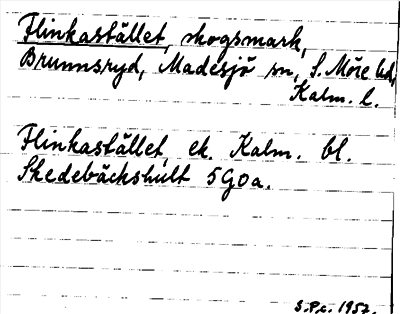 Flinkastället, skogsmark,
Brunnsryd, Madesjö sn, S. Möre hd,
Kalm. l.
Flinkastället, ek. Kalm. bl.
Skedebäckshult 5G0a.
S.P.c. 1957.